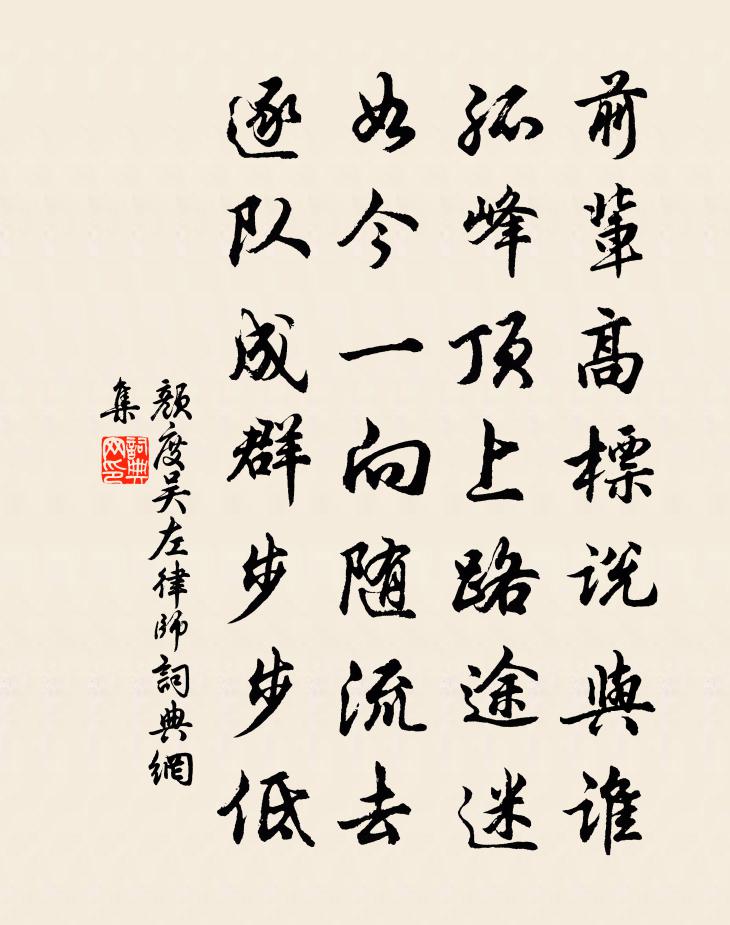 前輩高標説與誰
孤峰頂上路途迷
如今一向随流去
逐队成群步步低
顔度吴左律師詞典網
集
詞典
网印